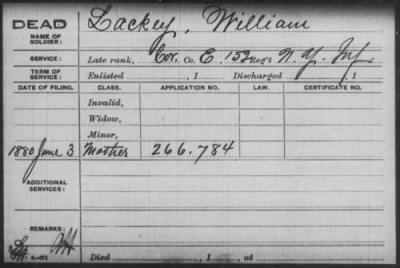 DEAD Lackey, William
NAME OF SOLDIER:
SERVICE: Late rank, Cor. Co. E, 152 Reg't N. Y. Inf.
TERM OF SERVICE: Enlisted , 1 Discharged , 1
DATE OF FILING. CLASS. APPLICATION NO. LAW. CERTIFICATE NO.
Invalid,
Widow,
Minor,
1880 June 3 Mother 266.784
ADDITIONAL SERVICES:
REMARKS:
Died , 1 , at